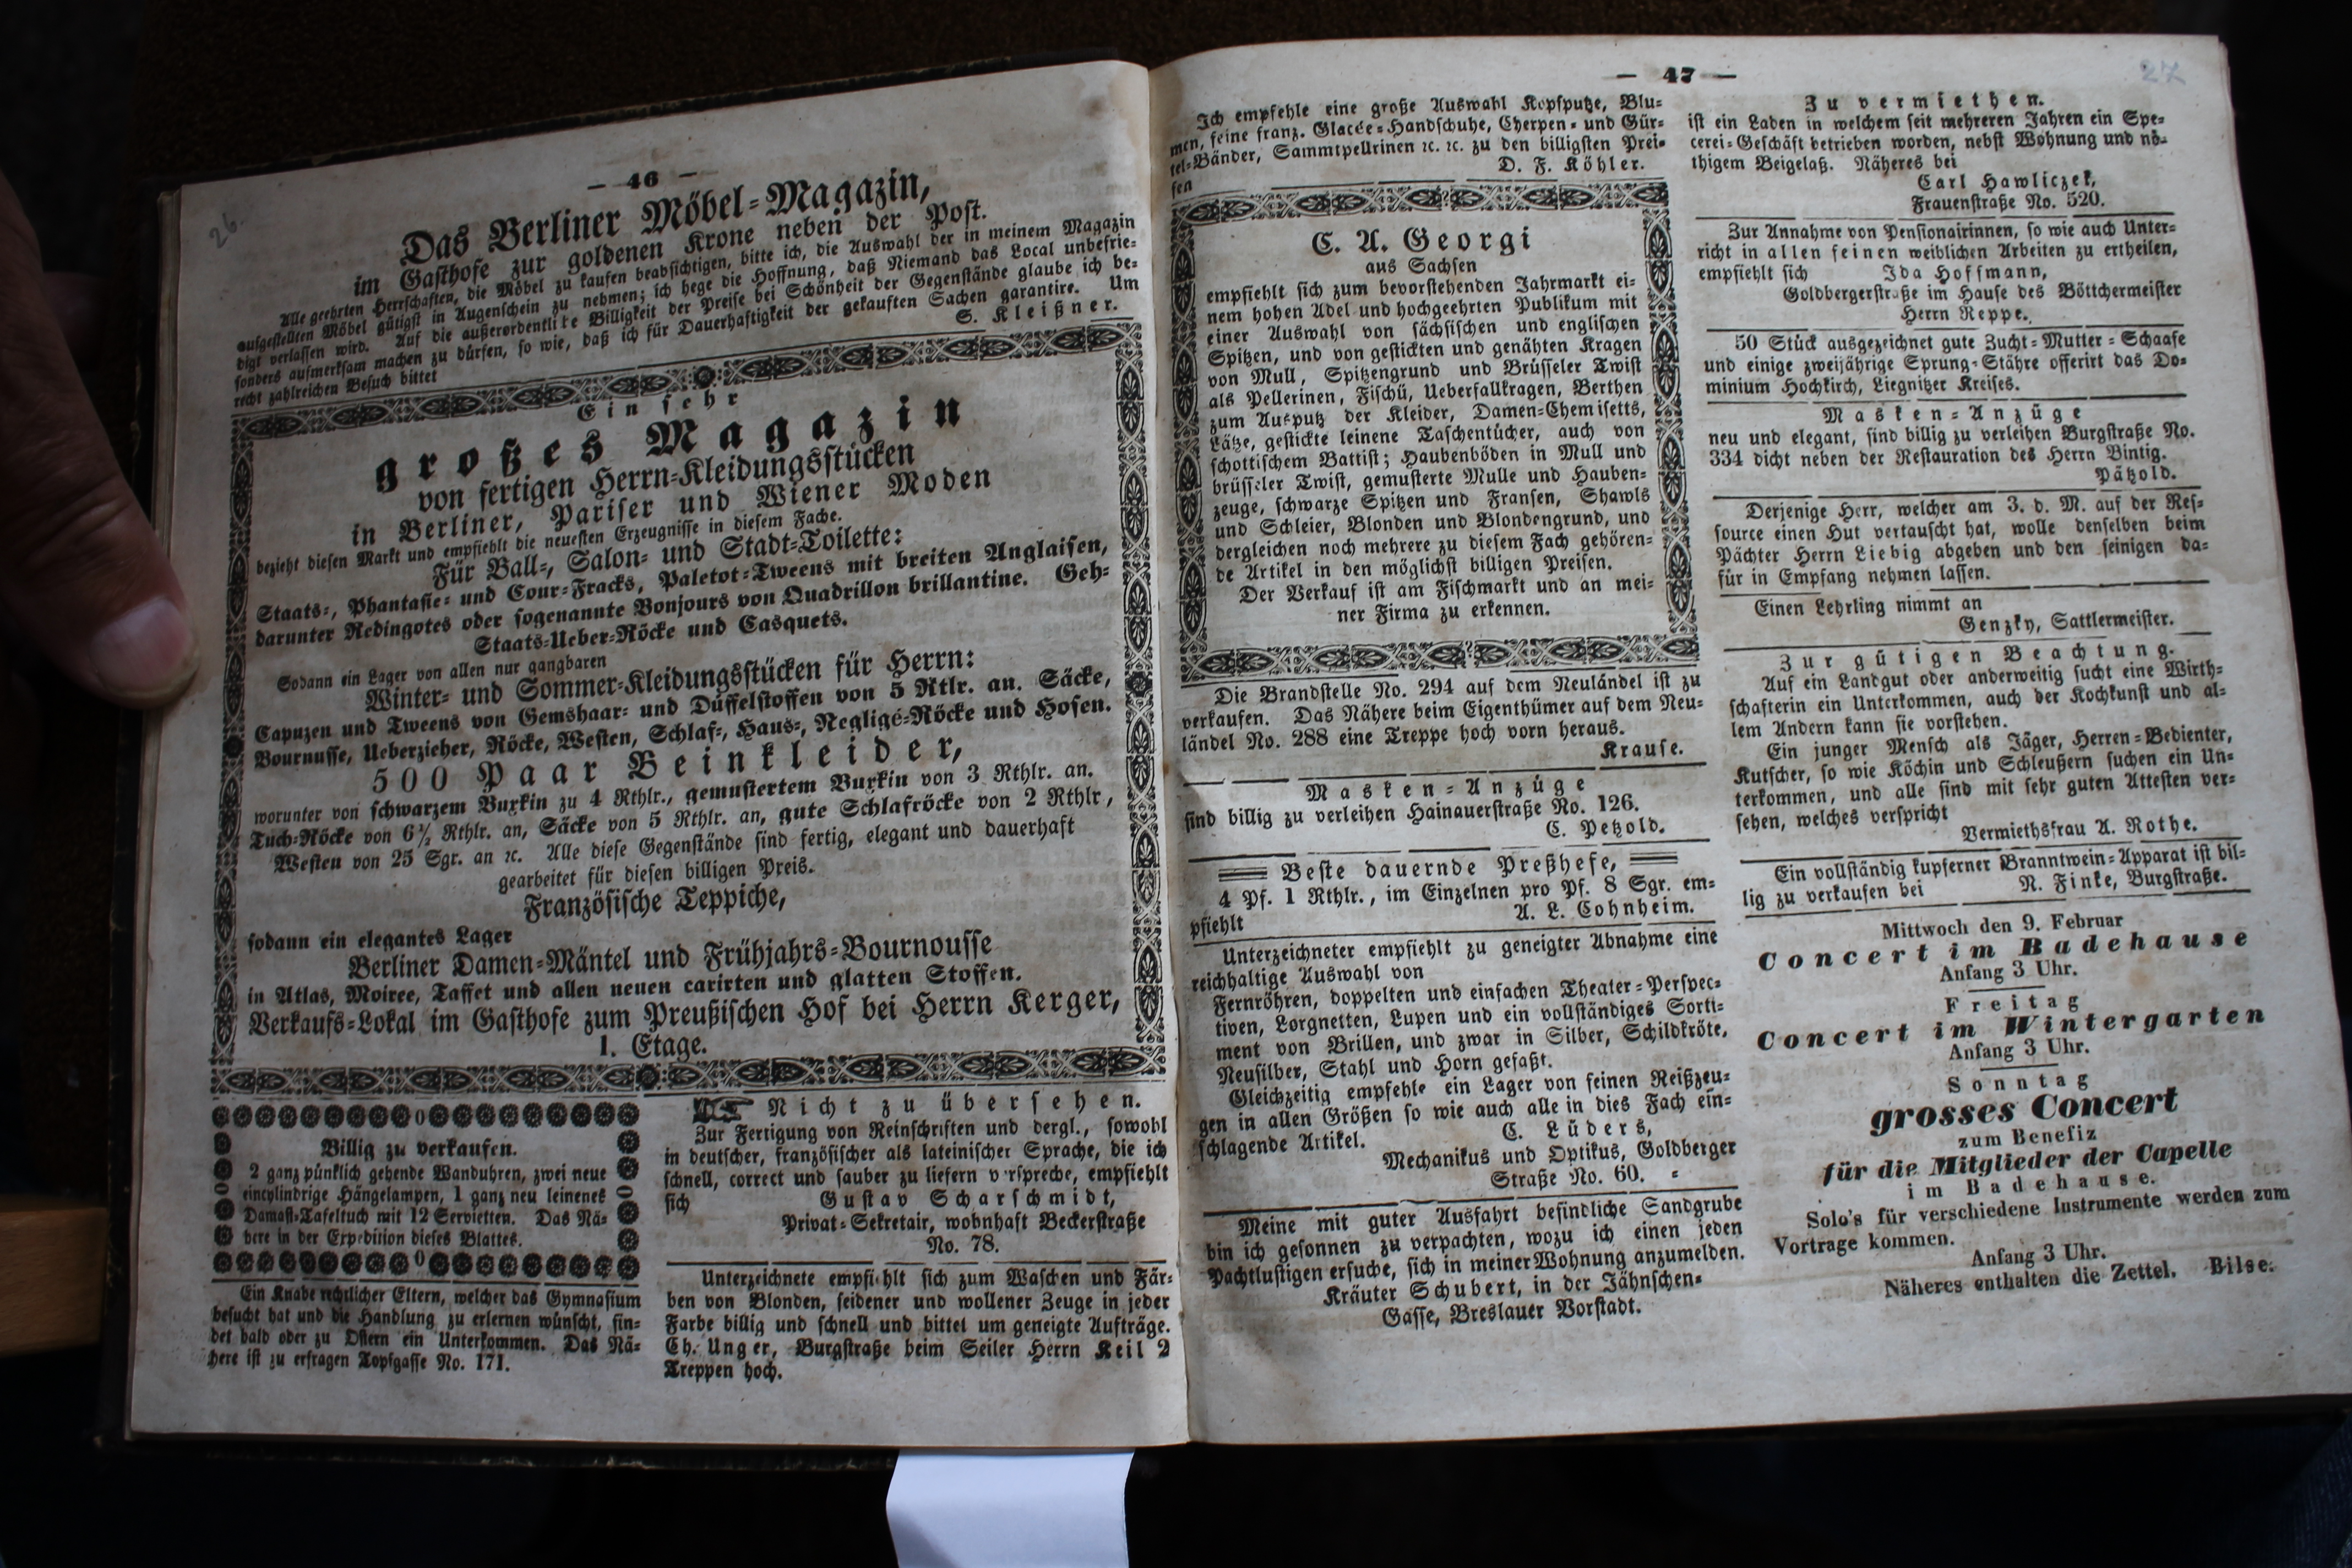 26.
— 46 —
Das Berliner Möbel-Magazin,
im Gasthofe zur goldenen Krone neben der Post.
Alle geehrten Herrschaften, die Möbel zu kaufen beabsichtigen, bitte ich, die Auswahl der in meinem Magazin
aufgestellten Möbel gütigst in Augenschein zu nehmen; ich hege die Hoffnung, daß Niemand das Local unbefrie-
digt verlassen wird. Auf die außerordentliche Billigkeit der Preise bei Schönheit der Gegenstände glaube ich be-
sonders aufmerksam machen zu dürfen, so wie, daß ich für Dauerhaftigkeit der gekauften Sachen garantire. Um
recht zahlreichen Besuch bittet
S. Kleißner.
Ein sehr
großes Magazin
von fertigen Herrn-Kleidungsstücken
in Berliner, Pariser und Wiener Moden
bezieht diesen Markt und empfiehlt die neuesten Erzeugnisse in diesem Fache.
Für Ball-, Salon- und Stadt-Toilette:
Staats-, Phantasie- und Cour-Fracks, Paletot-Tweens mit breiten Anglaisen,
darunter Redingotes oder sogenannte Bonjours von Quadrillon brillantine. Geh-
Staats-Ueber-Röcke und Casquets.
Sodann ein Lager von allen nur gangbaren
Winter- und Sommer-Kleidungsstücken für Herrn:
Capuzen und Tweens von Gemshaar- und Düffelstoffen von 5 Rtlr. an. Säcke,
Bournusse, Ueberzieher, Röcke, Westen, Schlaf-, Haus-, Negligé-Röcke und Hosen.
500 Paar Beinkleider,
worunter von schwarzem Buxkin zu 4 Rthlr., gemustertem Buxkin von 3 Rthlr. an.
Tuch-Röcke von 6½ Rthlr. an, Säcke von 5 Rthlr. an, gute Schlafröcke von 2 Rthlr,
Westen von 25 Sgr. an ꝛc. Alle diese Gegenstände sind fertig, elegant und dauerhaft
gearbeitet für diesen billigen Preis.
Französische Teppiche,
sodann ein elegantes Lager
Berliner Damen-Mäntel und Frühjahrs-Bournousse
in Atlas, Moiree, Taffet und allen neuen carirten und glatten Stoffen.
Verkaufs-Lokal im Gasthofe zum Preußischen Hof bei Herrn Kerger,
1. Etage.
Billig zu verkaufen.
2 ganz pünklich gehende Wanduhren, zwei neue
eincylindrige Hängelampen, 1 ganz neu leinenes
Damast-Tafeltuch mit 12 Servietten. Das Nä-
here in der Expedition dieses Blattes.
Ein Knabe rechtlicher Eltern, welcher das Gymnasium
besucht hat und die Handlung zu erlernen wünscht, fin-
det bald oder zu Ostern ein Unterkommen. Das Nä-
here ist zu erfragen Topfgasse No. 171.
Nicht zu übersehen.
Zur Fertigung von Reinschriften und dergl., sowohl
in deutscher, französischer als lateinischer Sprache, die ich
schnell, correct und sauber zu liefern verspreche, empfiehlt
sich Gustav Scharschmidt,
Privat-Sekretair, wohnhaft Beckerstraße
No. 78.
Unterzeichnete empfiehlt sich zum Waschen und Fär-
ben von Blonden, seidener und wollener Zeuge in jeder
Farbe billig und schnell und bittet um geneigte Aufträge.
Ch. Unger, Burgstraße beim Seiler Herrn Keil 2
Treppen hoch.
— 47 —
27
Ich empfehle eine große Auswahl Kopfputze, Blu-
men, feine franz. Glacée-Handschuhe, Cherpen- und Gür-
tel-Bänder, Sammtpellrinen ꝛc. ꝛc. zu den billigsten Prei-
sen D. F. Köhler.
C. A. Georgi
aus Sachsen
empfiehlt sich zum bevorstehenden Jahrmarkt ei-
nem hohen Adel und hochgeehrten Publikum mit
einer Auswahl von sächsischen und englischen
Spitzen, und von gestickten und genähten Kragen
von Mull, Spitzengrund und Brüsseler Twist
als Pellerinen, Fischü, Ueberfallkragen, Berthen
zum Ausputz der Kleider, Damen-Chemisetts,
Lätze, gestickte leinene Taschentücher, auch von
schottischem Battist; Haubenböden in Mull und
brüsseler Twist, gemusterte Mulle und Hauben-
zeuge, schwarze Spitzen und Fransen, Shawls
und Schleier, Blonden und Blondengrund, und
dergleichen noch mehrere zu diesem Fach gehören-
de Artikel in den möglichst billigen Preisen.
Der Verkauf ist am Fischmarkt und an mei-
ner Firma zu erkennen.
Die Brandstelle No. 294 auf dem Neuländel ist zu
verkaufen. Das Nähere beim Eigenthümer auf dem Neu-
ländel No. 288 eine Treppe hoch vorn heraus.
Krause.
Masken-Anzüge
sind billig zu verleihen Hainauerstraße No. 126.
C. Petzold.
Beste dauernde Preßhefe,
4 Pf. 1 Rthlr., im Einzelnen pro Pf. 8 Sgr. em-
pfiehlt A. L. Cohnheim.
Unterzeichneter empfiehlt zu geneigter Abnahme eine
reichhaltige Auswahl von
Fernröhren, doppelten und einfachen Theater-Perspec-
tiven, Lorgnetten, Lupen und ein vollständiges Sorti-
ment von Brillen, und zwar in Silber, Schildkröte,
Neusilber, Stahl und Horn gefaßt.
Gleichzeitig empfehle ein Lager von feinen Reißzeu-
gen in allen Größen so wie auch alle in dies Fach ein-
schlagende Artikel. C. Lüders,
Mechanikus und Optikus, Goldberger
Straße No. 60.
Meine mit guter Ausfahrt befindliche Sandgrube
bin ich gesonnen zu verpachten, wozu ich einen jeden
Pachtlustigen ersuche, sich in meiner Wohnung anzumelden.
Kräuter Schubert, in der Jähnschen-
Gasse, Breslauer Vorstadt.
Zu vermiethen.
ist ein Laden in welchem seit mehreren Jahren ein Spe-
cerei-Geschäft betrieben worden, nebst Wohnung und nö-
thigem Beigelaß. Näheres bei
Carl Hawliczek,
Frauenstraße No. 520.
Zur Annahme von Pensionairinnen, so wie auch Unter-
richt in allen feinen weiblichen Arbeiten zu ertheilen,
empfiehlt sich Ida Hoffmann,
Goldbergerstraße im Hause des Böttchermeister
Herrn Reppe.
50 Stück ausgezeichnet gute Zucht-Mutter-Schaafe
und einige zweijährige Sprung-Stähre offerirt das Do-
minium Hochkirch, Liegnitzer Kreises.
Masken-Anzüge
neu und elegant, sind billig zu verleihen Burgstraße No.
334 dicht neben der Restauration des Herrn Bintig.
Pätzold.
Derjenige Herr, welcher am 3. d. M. auf der Res-
source einen Hut vertauscht hat, wolle denselben beim
Pächter Herrn Liebig abgeben und den seinigen da-
für in Empfang nehmen lassen.
Einen Lehrling nimmt an
Genzky, Sattlermeister.
Zur gütigen Beachtung.
Auf ein Landgut oder anderweitig sucht eine Wirth-
schafterin ein Unterkommen, auch der Kochkunst und al-
lem Andern kann sie vorstehen.
Ein junger Mensch als Jäger, Herren-Bedienter,
Kutscher, so wie Köchin und Schleußern suchen ein Un-
terkommen, und alle sind mit sehr guten Attesten ver-
sehen, welches verspricht
Vermiethsfrau A. Rothe.
Ein vollständig kupferner Branntwein-Apparat ist bil-
lig zu verkaufen bei N. Finke, Burgstraße.
Mittwoch den 9. Februar
Concert im Badehause
Anfang 3 Uhr.
Freitag
Concert im Wintergarten
Anfang 3 Uhr.
Sonntag
grosses Concert
zum Benefiz
für die Mitglieder der Capelle
im Badehause.
Solo's für verschiedene Instrumente werden zum
Vortrage kommen.
Anfang 3 Uhr.
Näheres enthalten die Zettel. Bilse.